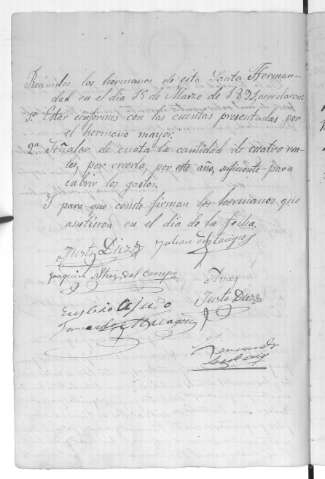 Reunidos los hermanos de esta Santa Herman-
dad en el día 15 de Marzo de 1891, acordaron
1º Estar conformes con las cuentas presentadas por
el hermano mayor.
2º Señalar de cuota la cantidad de cuatro rea-
les, por creerla, por este año, suficiente para
cubrir los gastos.
Y para que conste firman los hermanos que
asistieron en el día de la fecha.
Justo Diez Julian
del Campo
Justo Diez
Eustasio
Fernando